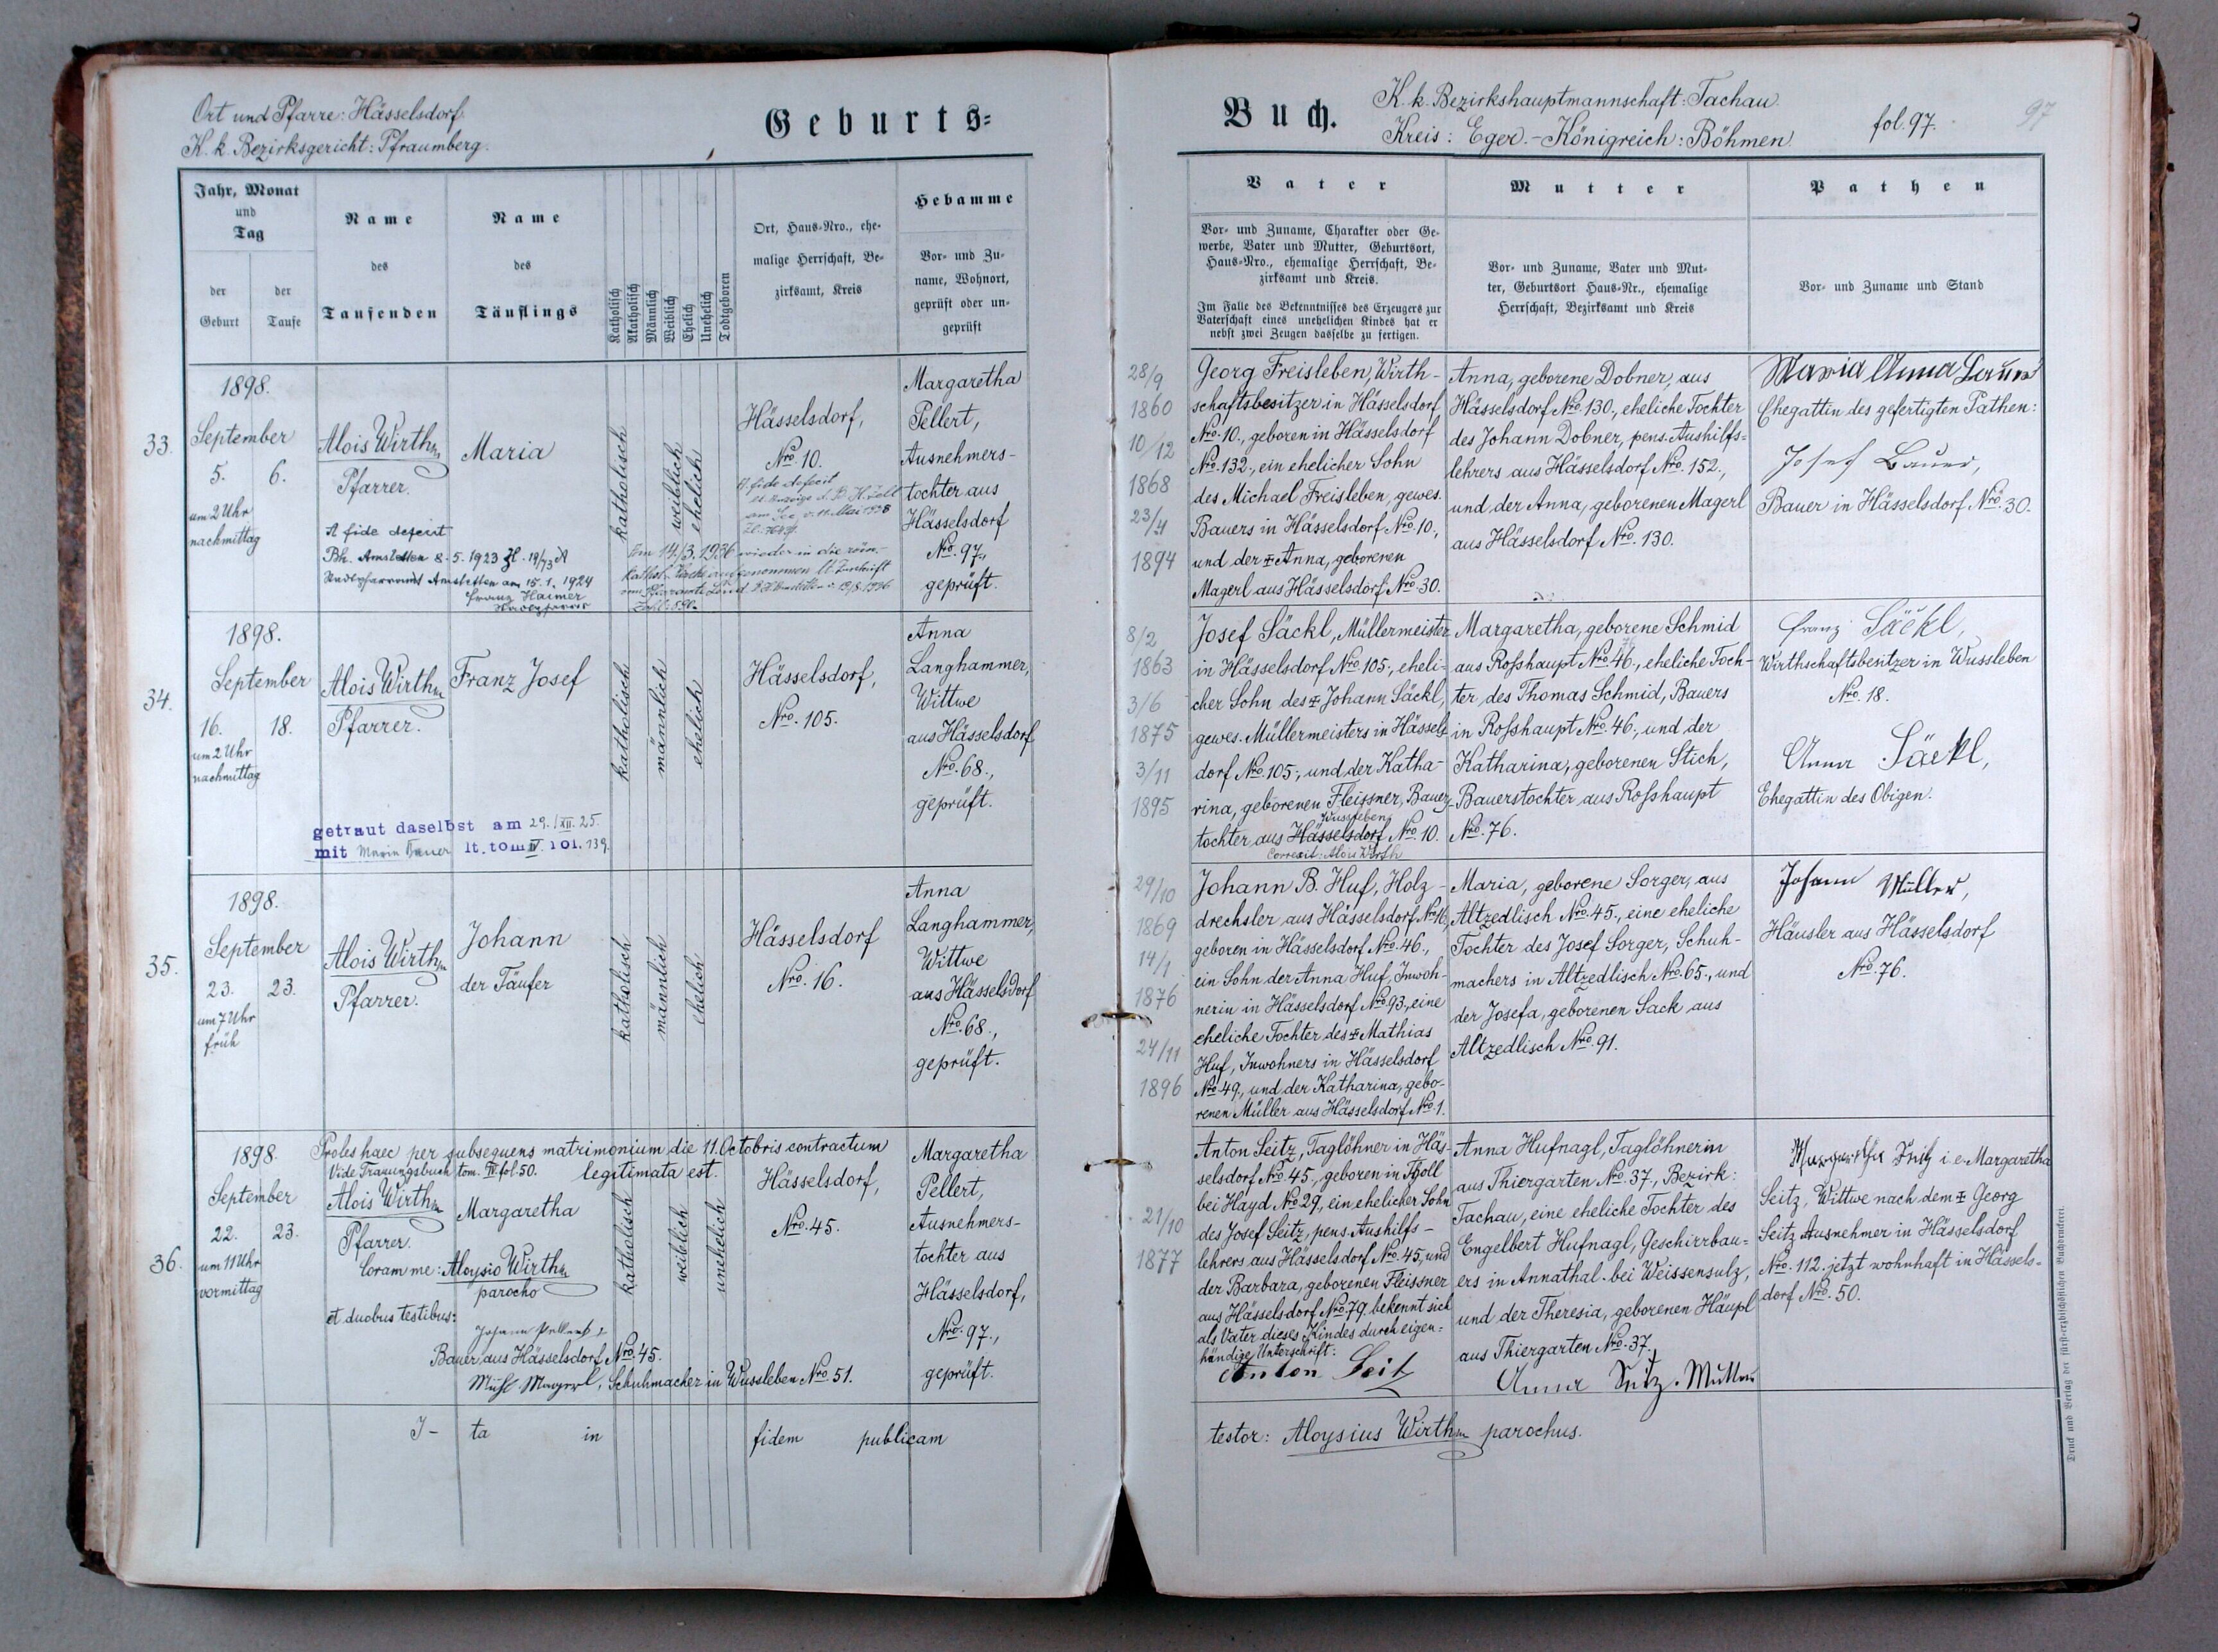 Ort und Pfarre: Hässelsdorf.
K. k. Bezirksgericht: Pfraumberg.
Geburts=
Jahr, Monat
und
Tag
der
Geburt
der
Taufe
Name
des
Taufenden
Name
des
Täuflings
Katholisch
Akatholisch
Männlich
Weiblich
Ehelich
Unehelich
Todtgeboren
Ort, Haus-Nro., ehe-
malige Herrschaft, Be-
zirksamt, Kreis
Hebamme
Vor- und Zu-
name, Wohnort,
geprüft oder un-
geprüft
33.
1898.
September
5. 6.
um 2 Uhr
nachmittag
Alois Wirth
Pfarrer.
Maria
katholisch
weiblich
ehelich
Hässelsdorf,
Nro. 10.
Margaretha
Pellert,
Ausnehmers-
tochter aus
Hässelsdorf
Nro. 97,
geprüft.
A fide defecit
Bh. Amstetten 8.5.1923 Zl. 19/73 A
Stadtpfarramt Amstetten am 15.1.1924
Franz Haimer
Stadtpfarrer
A fide defecit
am See v. 11. Mai 1938
Am 14/3. 1936 wieder in die röm.-
kathol. Kirche aufgenommen lt. Zuschrift
34.
1898.
September
16. 18.
um 2 Uhr
nachmittag
Alois Wirth
Pfarrer.
Franz Josef
katholisch
männlich
ehelich
Hässelsdorf,
Nro. 105.
Anna
Langhammer,
Wittwe
aus Hässelsdorf
Nro. 68.,
geprüft.
getraut daselbst am 29./XII. 25.
mit Maria Bauer lt. tom IV. fol. 139.
35.
1898.
September
23. 23.
um 7 Uhr
früh
Alois Wirth
Pfarrer.
Johann
der Täufer
katholisch
männlich
ehelich
Hässelsdorf
Nro. 16.
Anna
Langhammer,
Wittwe
aus Hässelsdorf
Nro. 68.,
geprüft.
36.
1898.
Proles haec per subsequens matrimonium die 11. Octobris contractum
Vide Trauungsbuch tom. IV. fol. 50. legitimata est.
September
22. 23.
um 11 Uhr
vormittag
Alois Wirth
Pfarrer.
Margaretha
Coram me: Aloysio Wirth
parocho
et duobus testibus:
Johann Pellert
Bauer aus Hässelsdorf Nro. 45.
Magerl, Schuhmacher in Wussleben Nro. 51.
katholisch
weiblich
unehelich
Hässelsdorf,
Nro. 45.
Margaretha
Pellert,
Ausnehmers-
tochter aus
Hässelsdorf,
Nro. 97.,
geprüft.
I- ta in fidem publicam
Buch.
K. k. Bezirkshauptmannschaft: Tachau.
Kreis: Eger. - Königreich: Böhmen.
fol. 97.
97
Vater
Vor- und Zuname, Charakter oder Ge-
werbe, Vater und Mutter, Geburtsort,
Haus-Nro., ehemalige Herrschaft, Be-
zirksamt und Kreis.
Im Falle des Bekenntnisses des Erzeugers zur
Vaterschaft eines unehelichen Kindes hat er
nebst zwei Zeugen dasselbe zu fertigen.
Mutter
Vor- und Zuname, Vater und Mut-
ter, Geburtsort Haus-Nr., ehemalige
Herrschaft, Bezirksamt und Kreis
Pathen
Vor- und Zuname und Stand
28/9
1860
10/12
1868
23/4
1894
Georg Freisleben, Wirth-
schaftsbesitzer in Hässelsdorf
Nro. 10., geboren in Hässelsdorf
Nro. 132., ein ehelicher Sohn
des Michael Freisleben, gewes.
Bauers in Hässelsdorf Nro. 10.,
und der ‡ Anna, geborenen
Magerl aus Hässelsdorf Nro. 30.
Anna, geborene Dobner, aus
Hässelsdorf Nro. 130., eheliche Tochter
des Johann Dobner, pens. Aushilfs=
lehrers aus Hässelsdorf Nro. 152.,
und der Anna, geborenen Magerl
aus Hässelsdorf Nro. 130.
Maria Anna Bauer
Ehegattin des gefertigten Pathen:
Josef Bauer,
Bauer in Hässelsdorf Nro. 30.
8/2
1863
3/6
1875
3/11
1895
Josef Säckl, Müllermeister
in Hässelsdorf Nro. 105., eheli-
cher Sohn des ‡ Johann Säckl,
gewes. Müllermeisters in Hässels=
dorf Nro. 105., und der Katha-
rina, geborenen Fleissner, Bauers-
Wussleben
tochter aus Hässelsdorf Nro. 10.
Correxit: Alois Wirth
Margaretha, geborene Schmid
aus Rosshaupt Nro. 46., eheliche Toch-
ter des Thomas Schmid, Bauers
in Rosshaupt Nro. 46., und der
Katharina, geborenen Stich,
Bauerstochter aus Rosshaupt
Nro. 76.
Franz Säckl,
Wirthschaftsbesitzer in Wussleben
Nro. 18.
Anna Säckl,
Ehegattin des Obigen.
29/10
1869
14/1
1876
24/11
1896
Johann B. Huf, Holz-
drechsler aus Hässelsdorf Nro. 16,
geboren in Hässelsdorf Nro. 46.,
ein Sohn der Anna Huf, Inwoh-
nerin in Hässelsdorf Nro. 93., eine
eheliche Tochter des ‡ Mathias
Huf, Inwohners in Hässelsdorf
Nro. 49., und der Katharina, gebo-
renen Müller aus Hässelsdorf Nro. 1.
Maria, geborene Sorger, aus
Altzedlisch Nro. 45., eine eheliche
Tochter des Josef Sorger, Schuh-
machers in Altzedlisch Nro. 65., und
der Josefa, geborenen Sack aus
Altzedlisch Nro. 91.
Johann Müller,
Häusler aus Hässelsdorf
Nro. 76.
21/10
1877
Anton Seitz, Taglöhner in Häs-
selsdorf Nro. 45., geboren in
bei Hayd Nro. 29., ein ehelicher Sohn
des Josef Seitz, pens. Aushilfs-
lehrers aus Hässelsdorf Nro. 45, und
der Barbara, geborenen Fleissner
aus Hässelsdorf Nro. 79. bekennt sich
als Vater dieses Kindes durch eigen=
händige Unterschrift:
Anton Seitz
Anna Hufnagl, Taglöhnerin
aus Thiergarten Nro. 37., Bezirk:
Tachau, eine eheliche Tochter des
Engelbert Hufnagl, Geschirrbau=
ers in Annathal bei Weissensulz,
und der Theresia, geborenen Häupl
aus Thiergarten Nro. 37.
Anna Seitz. Mutter
Margaretha Seitz i. e. Margaretha
Seitz, Wittwe nach dem ‡ Georg
Seitz Ausnehmer in Hässelsdorf
Nro. 112. jetzt wohnhaft in Hässels=
dorf Nro. 50.
testor: Aloysius Wirth parochus.
Druck und Verlag der fürst-erzbischöflichen Buchdruckerei.